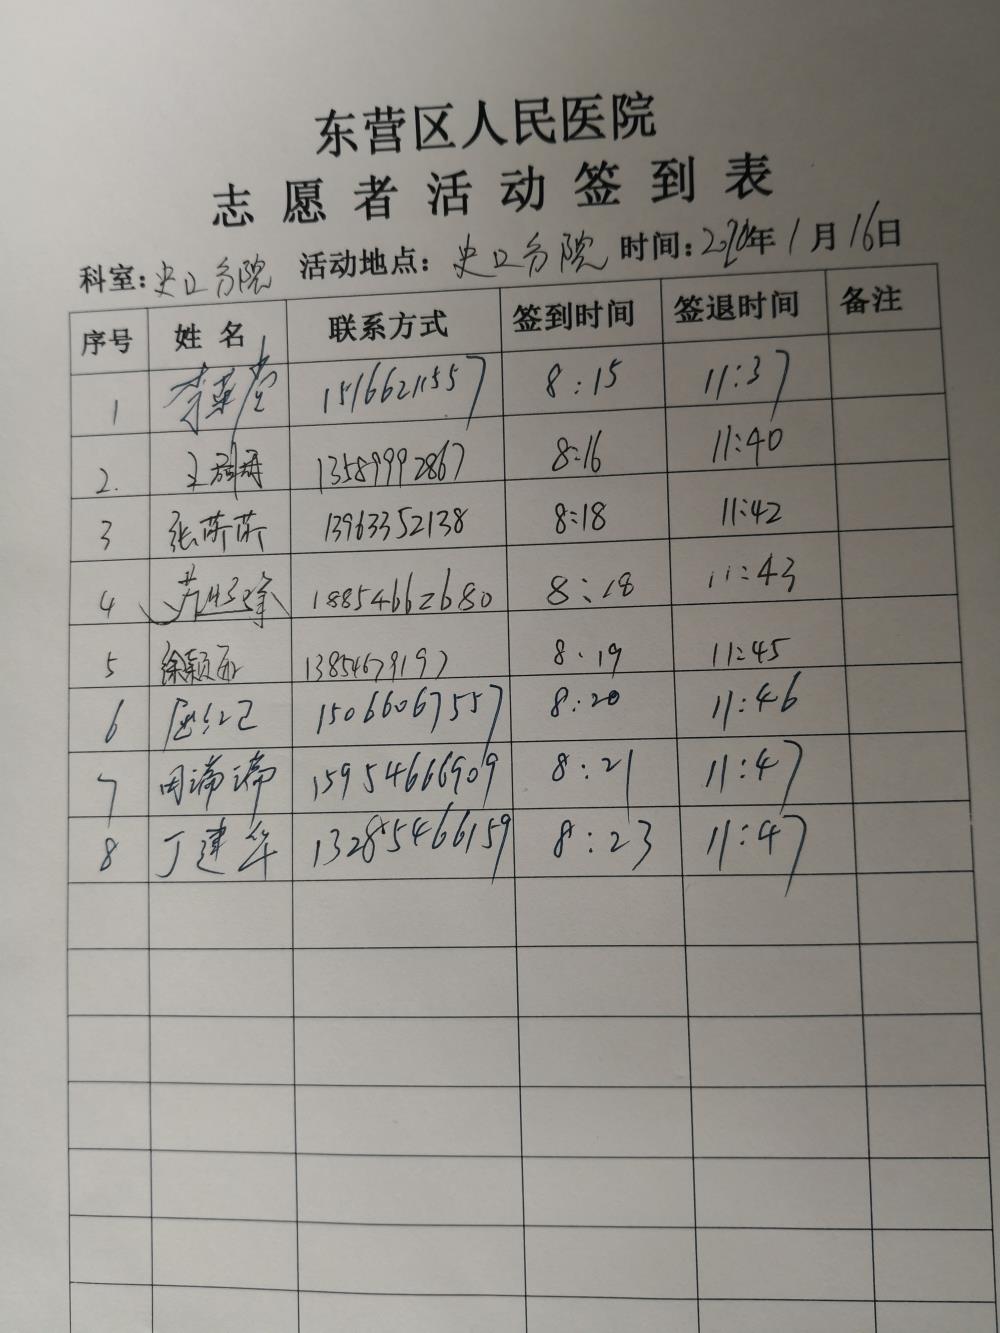 东营区人民医院
志愿者活动签到表
科室：史口分院 活动地点：史口分院 时间：2020年1月16日
序号 姓名 联系方式 签到时间 签退时间 备注
1 李華堂 15166211557 8:15 11:37
2. 王 13589992867 8:16 11:40
3 张芹芹 13963352138 8:18 11:42
4 18854662680 8:18 11:43
5 徐颖 13854679197 8:19 11:45
6 15066067557 8:20 11:46
7 田瑞瑞 15954666909 8:21 11:47
8 丁建华 13285466159 8:23 11:47